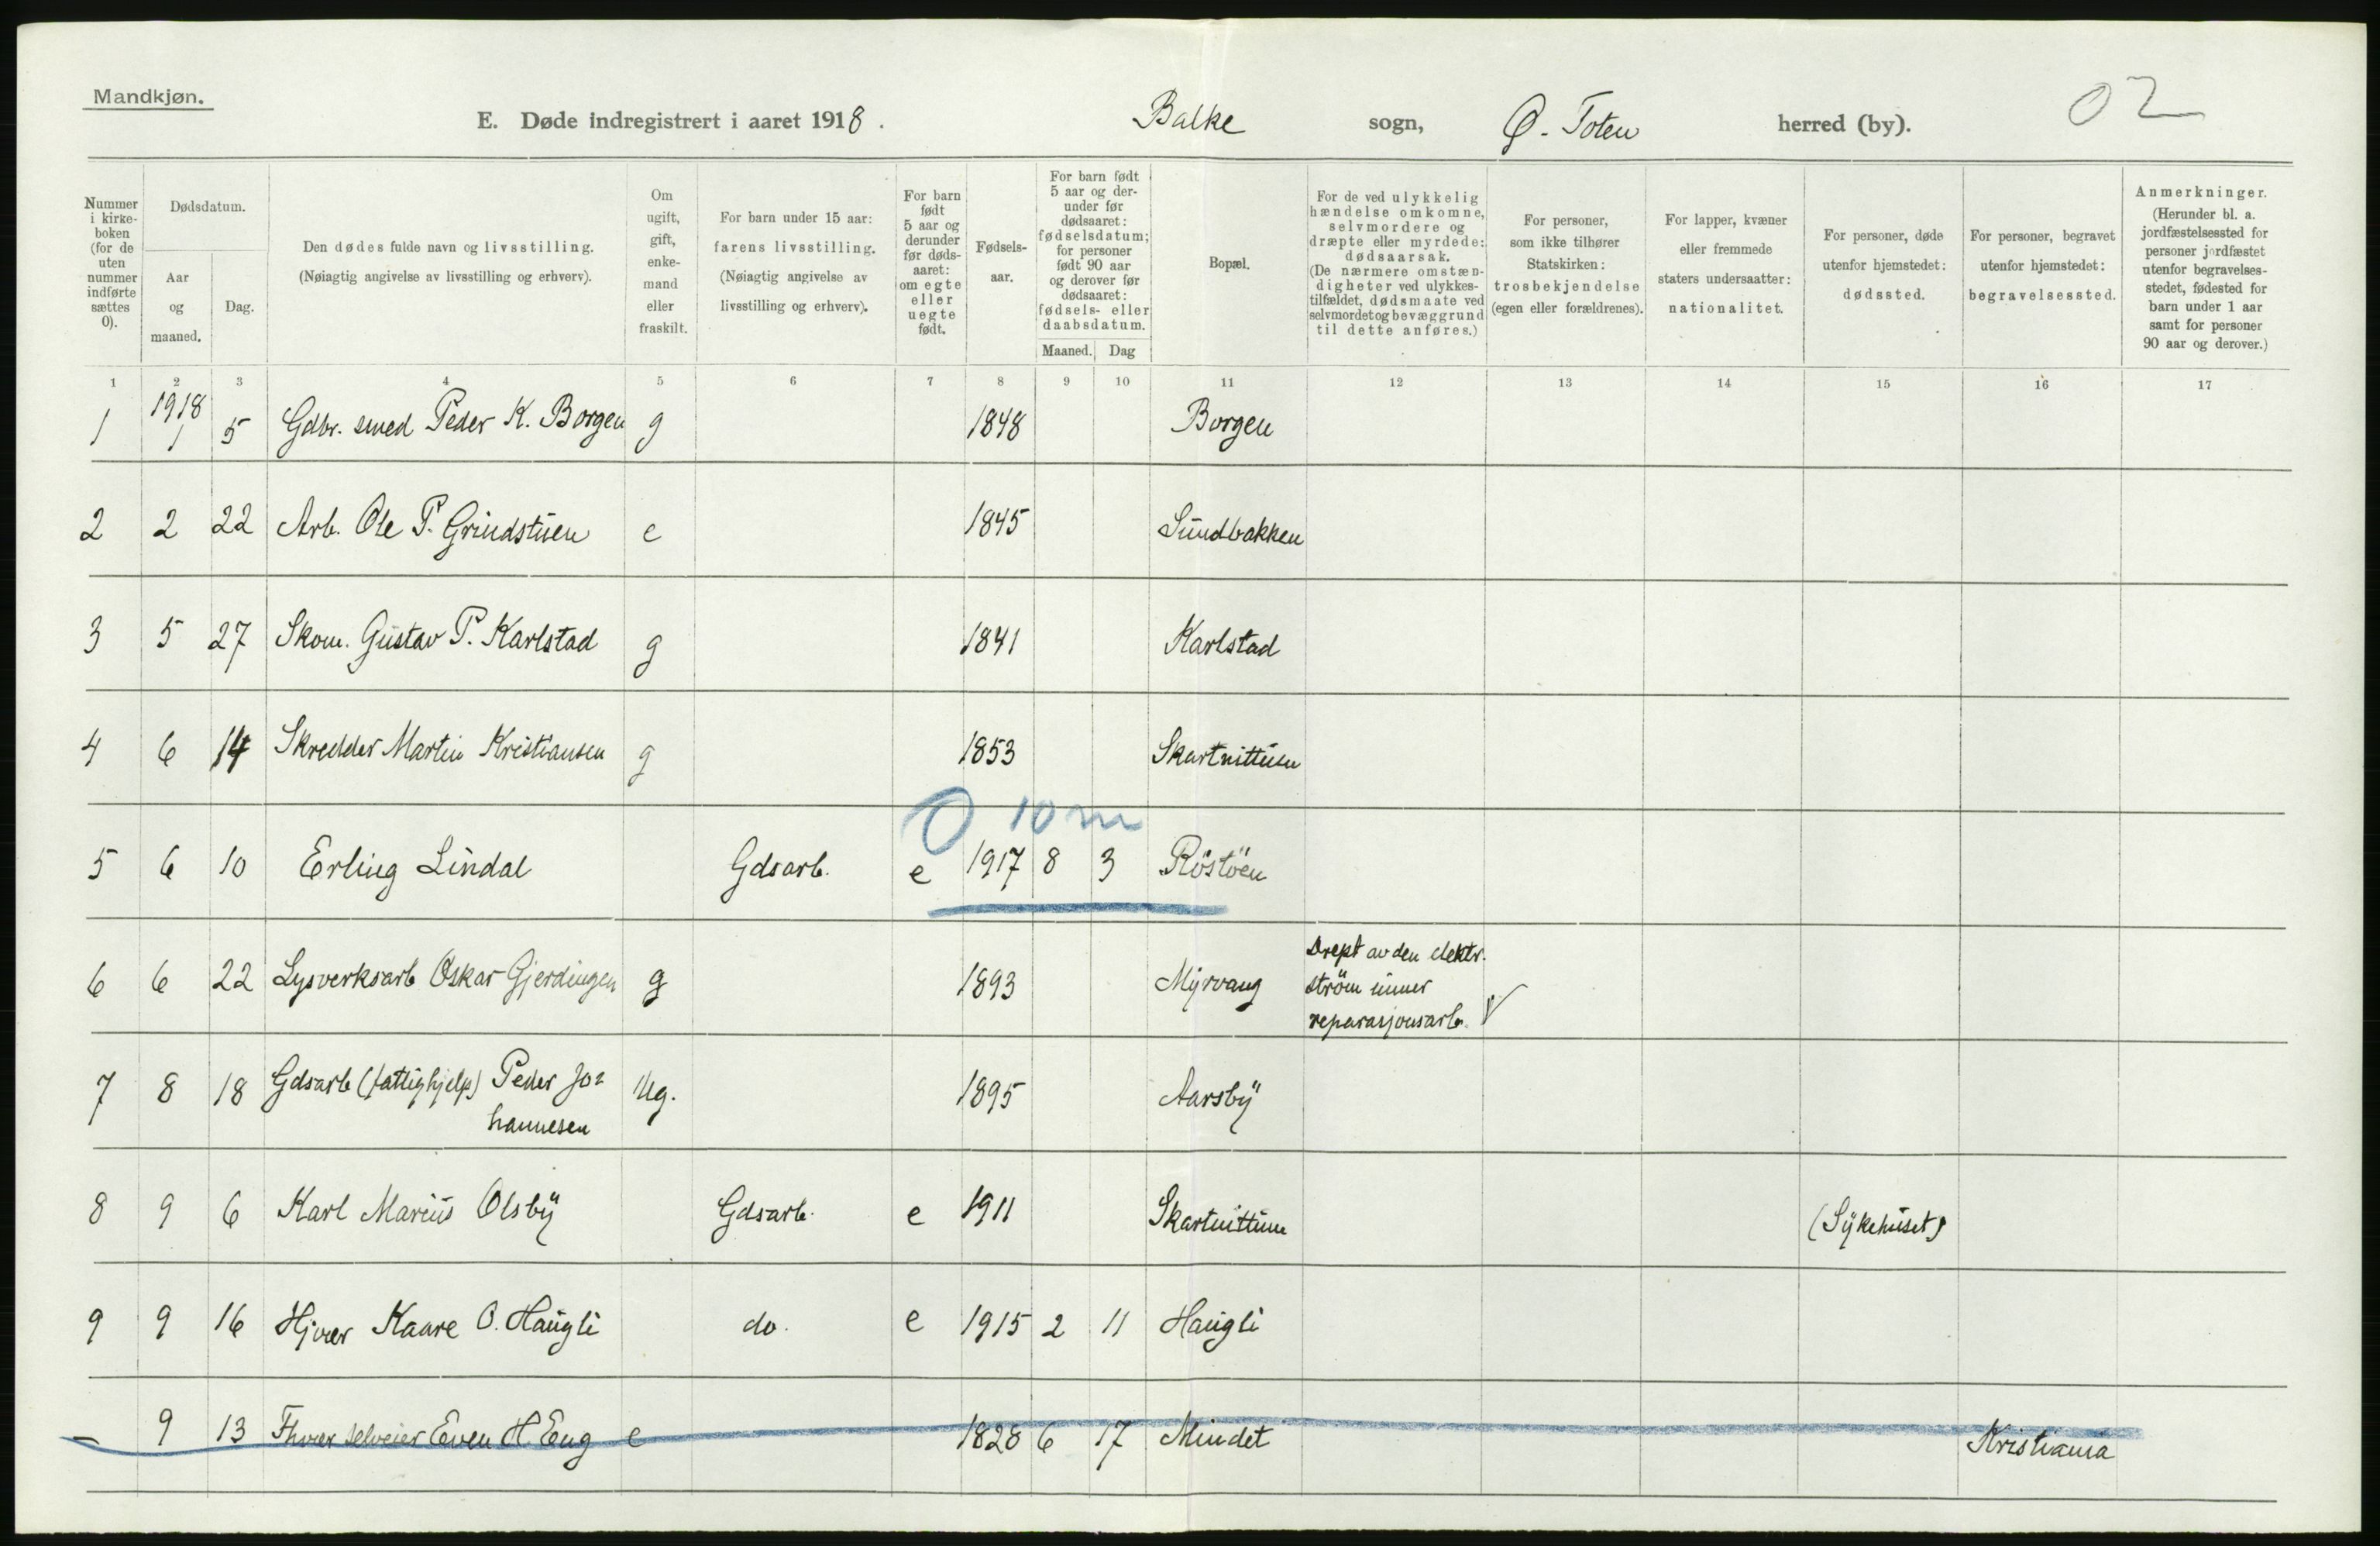 Mandkjøn.
E. Døde indregistrert i aaret 1918. Balke sogn, Ø. Toten herred (by). 02
Nummer i kirke-boken (for de uten nummer indførte sættes 0).
Dødsdatum.
Aar og maaned.
Dag.
Den dødes fulde navn og livsstilling.
(Nøiagtig angivelse av livsstilling og erhverv).
Om ugift, gift, enke-mand eller fraskilt.
For barn under 15 aar: farens livsstilling.
(Nøiagtig angivelse av livsstilling og erhverv).
For barn født 5 aar og derunder før døds-aaret: om egte eller uegte født.
Fødsels-aar.
For barn født 5 aar og der-under før dødsaaret: fødselsdatum; for personer født 90 aar og derover før dødsaaret: fødsels- eller daabsdatum.
Maaned. Dag
Bopæl.
For de ved ulykkelig hændelse omkomne, selvmordere og dræpte eller myrdede: dødsaarsak.
(De nærmere omstæn-digheter ved ulykkes-tilfældet, dødsmaate ved selvmordet og bevæggrund til dette anføres.)
For personer, som ikke tilhører Statskirken: trosbekjendelse (egen eller forældrenes).
For lapper, kvæner eller fremmede staters undersaatter: nationalitet.
For personer, døde utenfor hjemstedet: dødssted.
For personer, begravet utenfor hjemstedet: begravelsessted.
Anmerkninger.
(Herunder bl. a. jordfæstelsessted for personer jordfæstet utenfor begravelses-stedet, fødested for barn under 1 aar samt for personer 90 aar og derover.)
1 2 3 4 5 6 7 8 9 10 11 12 13 14 15 16 17
1918
1 1 5 Gdbr. smed Peder K. Borgen g 1848 Borgen
2 2 22 Arb. Ole P. Grindstuen e 1845 Sundbakken
3 5 27 Skom. Gustav P. Karlstad g 1841 Karlstad
4 6 14 Skredder Martin Kristiansen g 1853 Skartnittuen
0 10 m
5 6 10 Erling Lindal Gdsarb. e 1917 8 3 Röstöen
6 6 22 Lysverksarb Oskar Gjerdingen g 1893 Myrvang Drept av den elektr.
ström under
reparasjonsarb.
7 8 18 Gdsarb (fattighjelp) Peder Jo= Ug. 1895 Aarsby
hannesen
8 9 6 Karl Marius Olsby Gdsarb. e 1911 Skartnittuen (Sykehuset)
9 9 16 Hjvær Kaare O. Haugli do. e 1915 2 11 Haugli
– 9 13 Fhvær selveier Even H. Eng e 1828 6 17 Mindet Kristiania